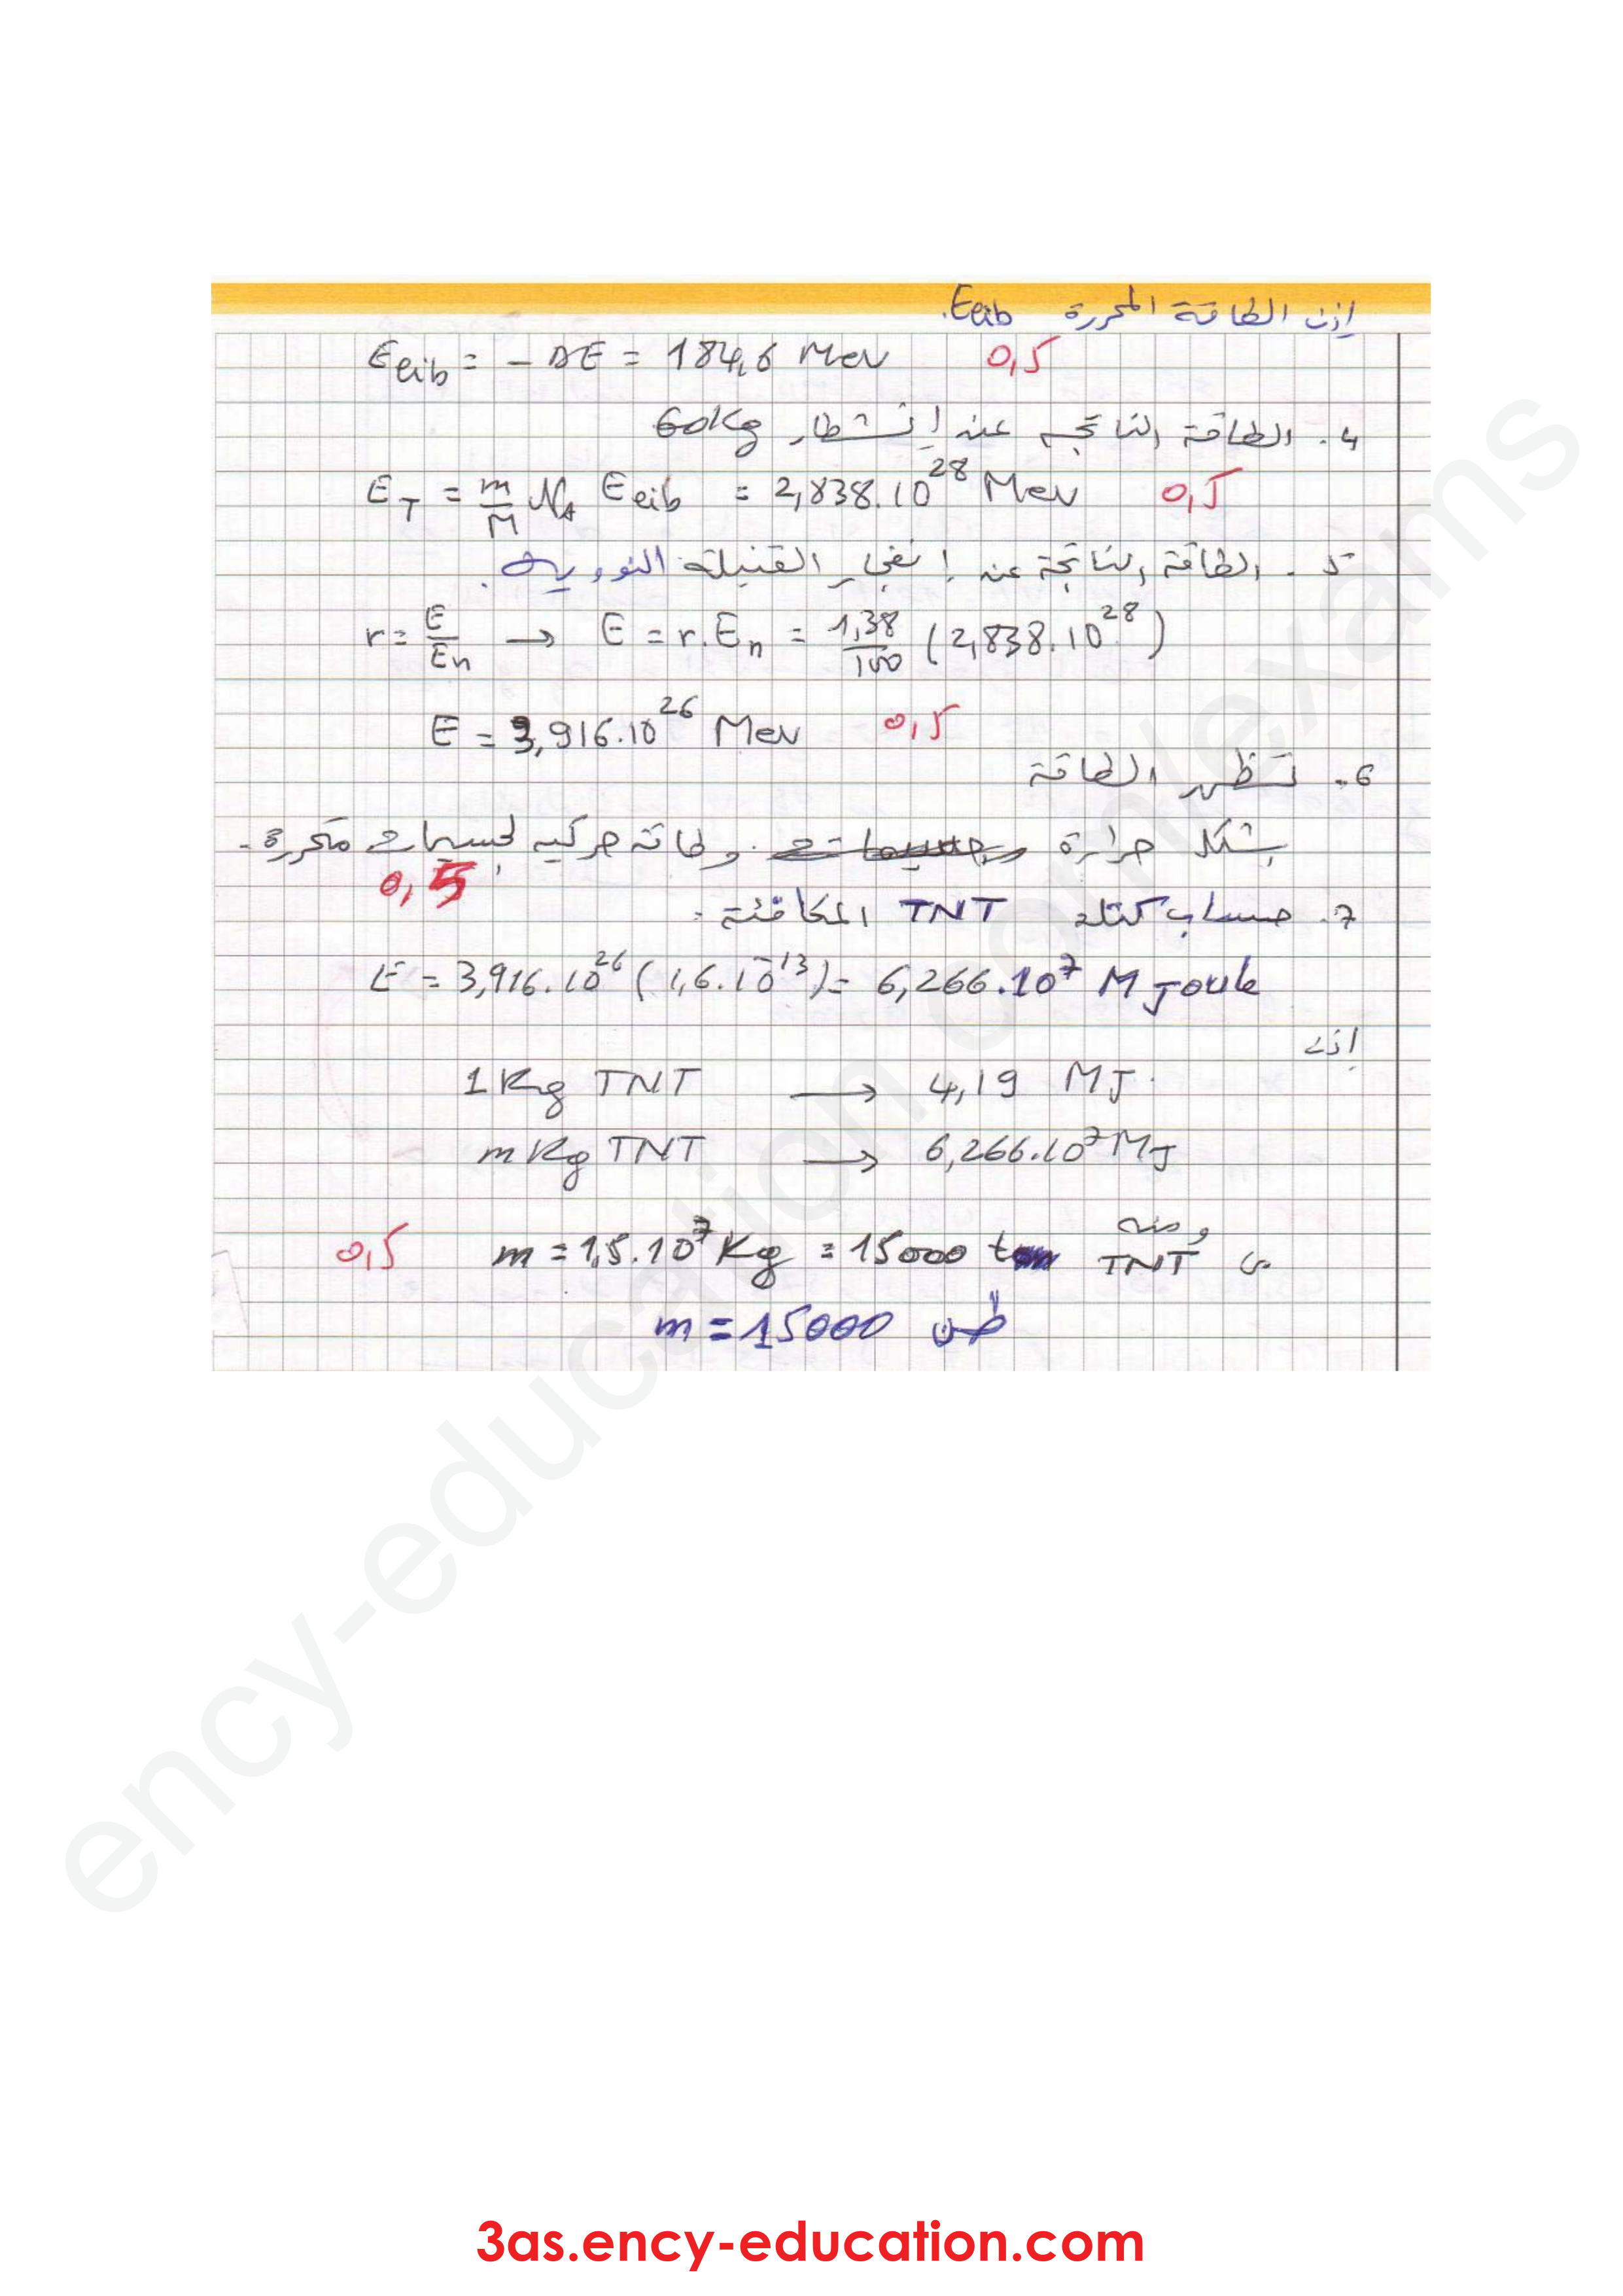 إذن الطاقة المحررة Eeib.
Eeib = - ΔE = 184,6 Mev 0,5
4. الطاقة الناتجة عند إنشطار 60Kg
E_T = m/M N_A Eeib = 2,838.10^28 Mev 0,5
5. الطاقة الناتجة عند إنفجار القنبلة النووية.
r = E/En → E = r.En = 1,38/100 (2,838.10^28)
E = 3,916.10^26 Mev 0,5
6. تظهر الطاقة
بشكل حرارة وطاقة حركية لجسيمات محررة.
0,5
7. حساب كتلة TNT المكافئة:
E = 3,916.10^26 (1,6.10^-13) = 6,266.10^7 M Joule
إذن
1 Kg TNT → 4,19 MJ.
m Kg TNT → 6,266.10^7 MJ
ومنه
0,5 m = 1,5.10^7 Kg = 15000 ton TNT من
m = 15000 طن
ency-education.com/exams
3as.ency-education.com